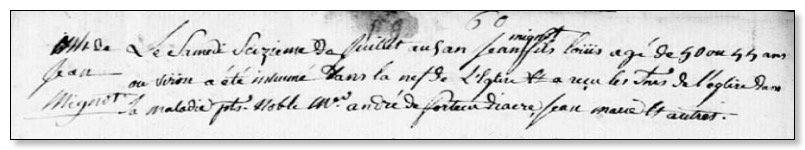 60
mignot
de Le Samedi Seizieme de Juillet au an Jean fils loüis agé de 50 ou 55 ans
Jean ou viron a été inhumé Dans la nef de L'Eglise Et a reçu les de l'église dans
Mignot Sa maladie pts. Noble Mre. andré de diacre, Jean marie Et autres.